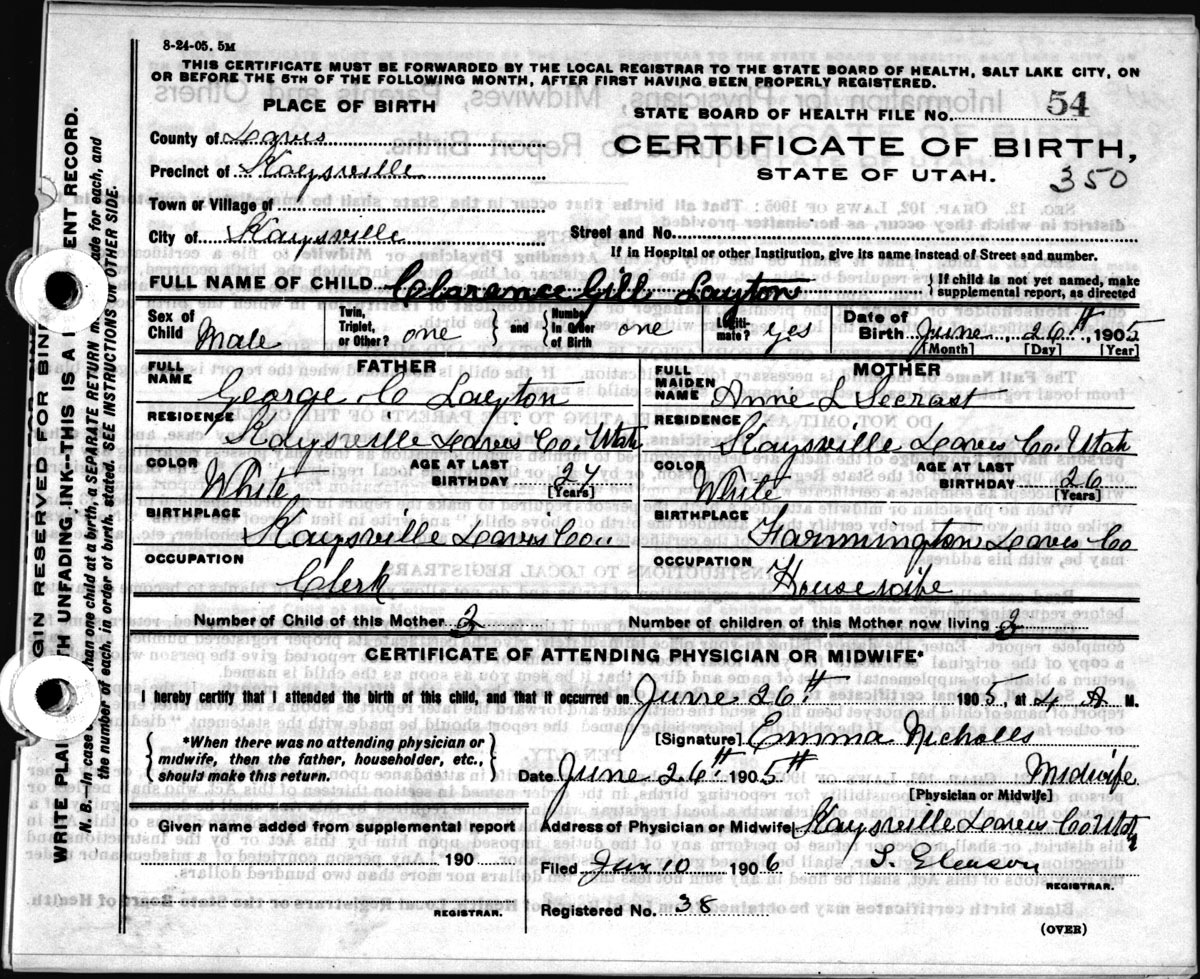 8-24-05. 5M
THIS CERTIFICATE MUST BE FORWARDED BY THE LOCAL REGISTRAR TO THE STATE BOARD OF HEALTH, SALT LAKE CITY, ON
OR BEFORE THE 5TH OF THE FOLLOWING MONTH, AFTER FIRST HAVING BEEN PROPERLY REGISTERED.
PLACE OF BIRTH
STATE BOARD OF HEALTH FILE No. 54
County of Davis
CERTIFICATE OF BIRTH,
Precinct of Kaysville
STATE OF UTAH.
350
Town or Village of
City of Kaysville Street and No.
If in Hospital or other Institution, give its name instead of Street and number.
FULL NAME OF CHILD Clarence Gill Layton { If child is not yet named, make
supplemental report, as directed
Sex of Child Male Twin, Triplet, or Other? one } and { Number in Order of Birth one Legiti-mate? yes Date of Birth June, 26th, 1905
[Month] [Day] [Year]
FATHER MOTHER
FULL NAME George C Layton FULL MAIDEN NAME Annie L Secrast
RESIDENCE Kaysville Davis Co. Utah RESIDENCE Kaysville Davis Co. Utah
COLOR White AGE AT LAST BIRTHDAY 27 [Years] COLOR White AGE AT LAST BIRTHDAY 26 [Years]
BIRTHPLACE Kaysville Davis Co. BIRTHPLACE Farmington Davis Co
OCCUPATION Clerk OCCUPATION Housewife
Number of Child of this Mother 2 Number of children of this Mother now living 2
CERTIFICATE OF ATTENDING PHYSICIAN OR MIDWIFE*
I hereby certify that I attended the birth of this child, and that it occurred on June 26th 1905, at 4 A M.
{ *When there was no attending physician or
midwife, then the father, householder, etc.,
should make this return. }
[Signature] Emma Nicholls
Date June 26th 1905th Midwife
[Physician or Midwife]
Given name added from supplemental report
190
REGISTRAR.
Address of Physician or Midwife Kaysville Davis Co Utah
Filed Jan 10 1906 S. Gleason
REGISTRAR.
Registered No. 38
(OVER)
GIN RESERVED FOR BIN
WRITE PLAI TH UNFADING INK--THIS IS A ENT RECORD.
N. B.—In case than one child at a birth, a SEPARATE RETURN m ade for each, and
the number of each, in order of birth, stated. SEE INSTRUCTIONS ON OTHER SIDE.